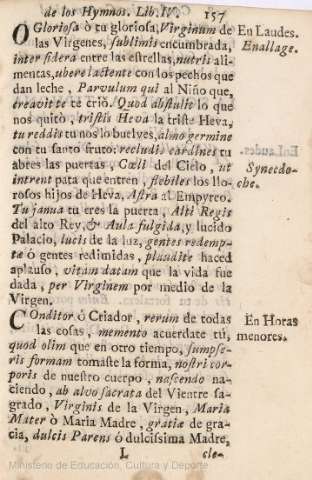 de los Hymnos. Lib. IV. 157
O Gloriosa ò tu gloriosa, Virginum de
las Virgenes, sublimis encumbrada,
inter sidera entre las estrellas, nutris ali-
mentas, ubere lactente con los pechos que
dan leche, Parvulum qui al Niño que,
creavit te te criò. Quod abstulit lo que
nos quitò, tristis Heva la triste Heva,
tu reddis tu nos lo buelves, almo germine
con tu santo fruto: recludis cardines tu
abres las puertas, Cœli del Cielo, ut
intrent para que entren, flebiles los llo-
rosos hijos de Heva, Astra al Empyreo.
Tu janua tu eres la puerta, Alti Regis
del alto Rey, & Aula fulgida, y lucido
Palacio, lucis de la luz, gentes redemp-
tæ ò gentes redimidas, plaudite haced
aplauso, vitam datam que la vida fue
dada, per Virginem por medio de la
Virgen.
En Laudes.
Enallage.
Synecdo-
che.
Conditor ò Criador, rerum de todas
las cosas, memento acuerdate tú,
quod olim que en otro tiempo, sumpse-
ris formam tomaste la forma, nostri cor-
poris de nuestro cuerpo, nascendo na-
ciendo, ab alvo sacrata del Vientre sa-
grado, Virginis de la Virgen, Maria
Mater ò Maria Madre, gratiæ de gra-
cia, dulcis Parens ò dulcissima Madre,
En Horas
menores.
L cle-
Ministerio de Educación, Cultura y Deporte